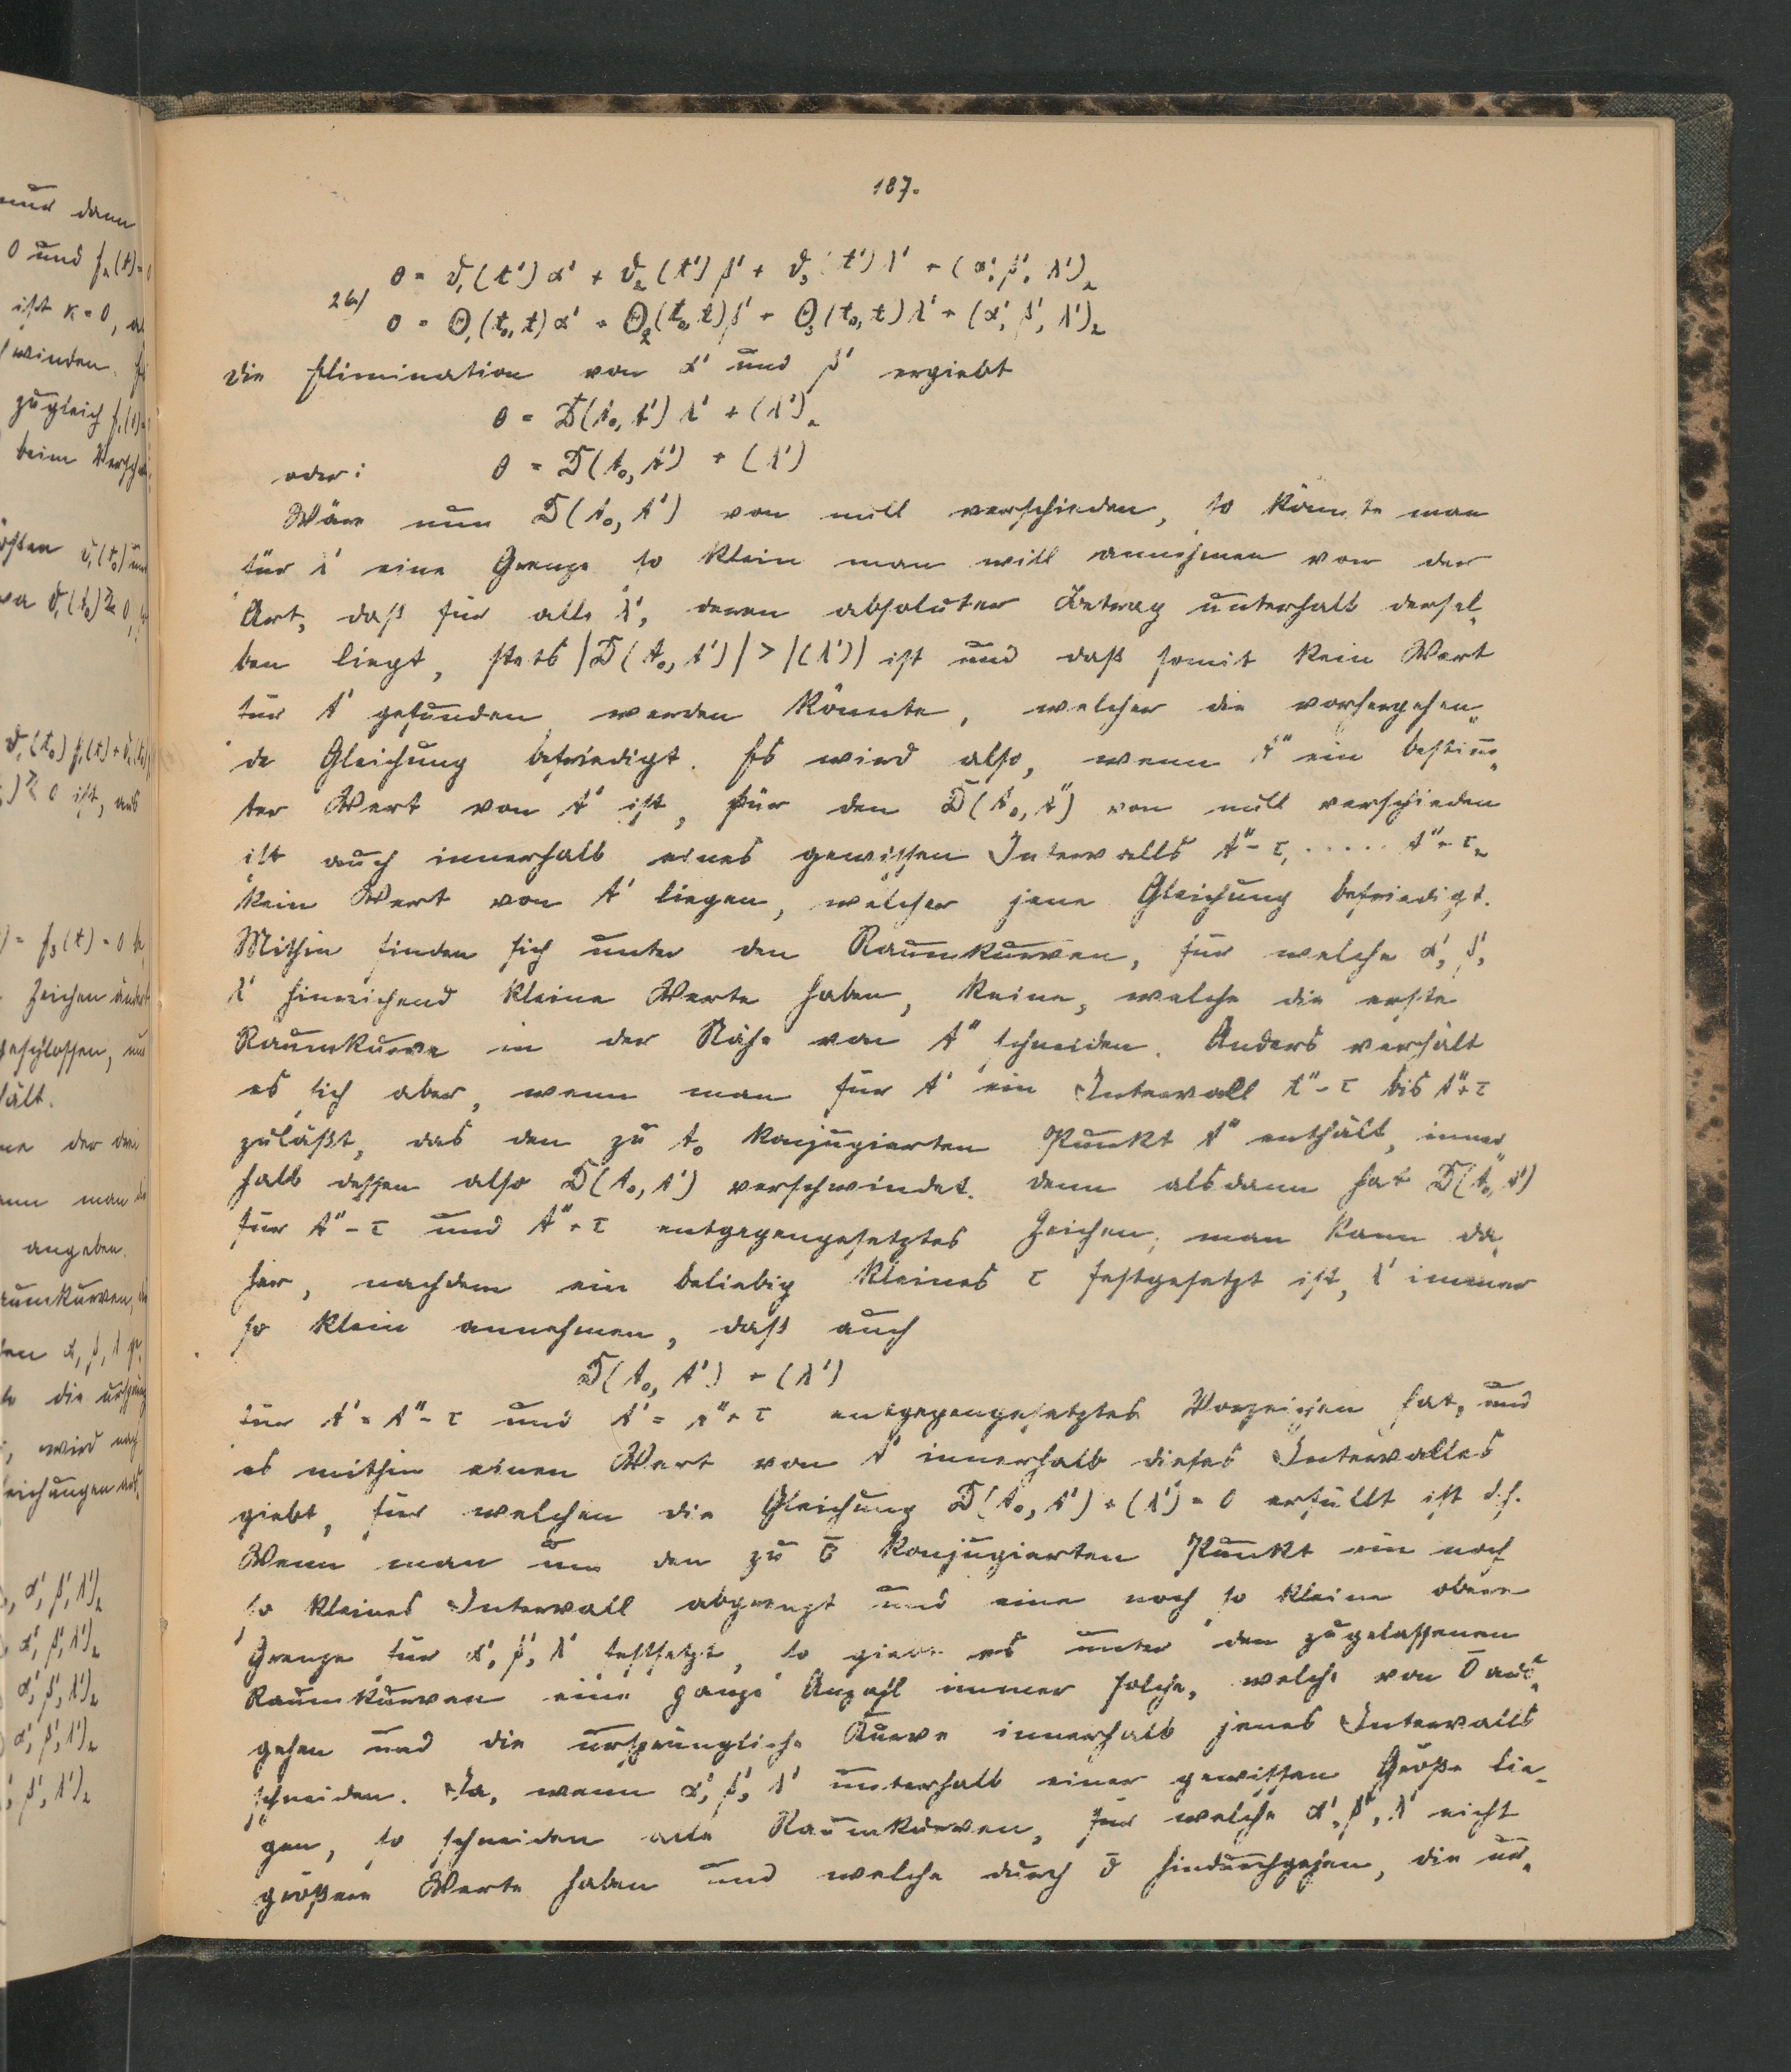 187.
0 = ϑ₁(t')α' + ϑ₂(t')β' + ϑ₃(t')λ' + (α', β', λ')₂
26)
0 = Θ₁(t₀,t)α' + Θ₂(t₀,t)β' + Θ₃(t₀,t)λ' + (α', β', λ')₂
Die Elimination von α' und β' ergiebt
0 = D(t₀, t') λ' + (λ')₂
oder: 0 = D(t₀, t') + (λ')
Wäre nun D(t₀, t') von null verschieden, so könnte man
für λ' eine Grenze so klein man will annehmen von der
Art, daß für alle λ', deren absoluter Betrag unterhalb dersel-
ben liegt, stets |D(t₀, t')| > |(λ')| ist und daß somit kein Wert
für t' gefunden werden könnte, welcher die vorhergehen-
de Gleichung befriedigt. Es wird also, wenn t'' ein bestim̄-
ter Wert von t' ist, für den D(t₀, t'') von null verschieden
ist auch innerhalb eines gewissen Intervalls t''-τ₁ ..... t''+τ₂
kein Wert von t' liegen, welcher jene Gleichung befriedigt.
Mithin finden sich unter den Raumkurven, für welche α', β',
λ' hinreichend kleine Werte haben, keine, welche die erste
Raumkurve in der Nähe von t'' schneiden. Anders verhält
es sich aber, wenn man für t' ein Intervall t''-τ bis t''+τ
zuläßt, das den zu t₀ konjugierten Punkt t'' enthält, inner-
halb dessen also D(t₀, t') verschwindet. Denn alsdann hat D(t₀, t')
für t''-τ und t''+τ entgegengesetztes Zeichen; man kann da-
her, nachdem ein beliebig kleines τ festgesetzt ist, λ' immer
so klein annehmen, daß auch
D(t₀, t') + (λ')
für t' = t''-τ und t' = t''+τ entgegengesetztes Vorzeichen hat, und
es mithin einen Wert von t' innerhalb dieses Intervalles
giebt, für welchen die Gleichung D(t₀, t') + (λ') = 0 erfüllt ist d.h.
Wenn man um den zu 0̄ konjugierten Punkt ein noch
so kleines Intervall abgrenzt und eine noch so kleine obere
Grenze für α', β', λ' festsetzt, so giebt es unter den zugelassenen
Raumkurven eine ganze Anzahl immer solche, welche von 0̄ aus-
gehen und die ursprüngliche Kurve innerhalb jenes Intervalls
schneiden. Ja, wenn α', β', λ' unterhalb einer gewissen Größe lie-
gen, so schneiden alle Raumkurven, für welche α', β', λ' nicht
größere Werte haben und welche durch 0̄ hindurchgehen, die ur-